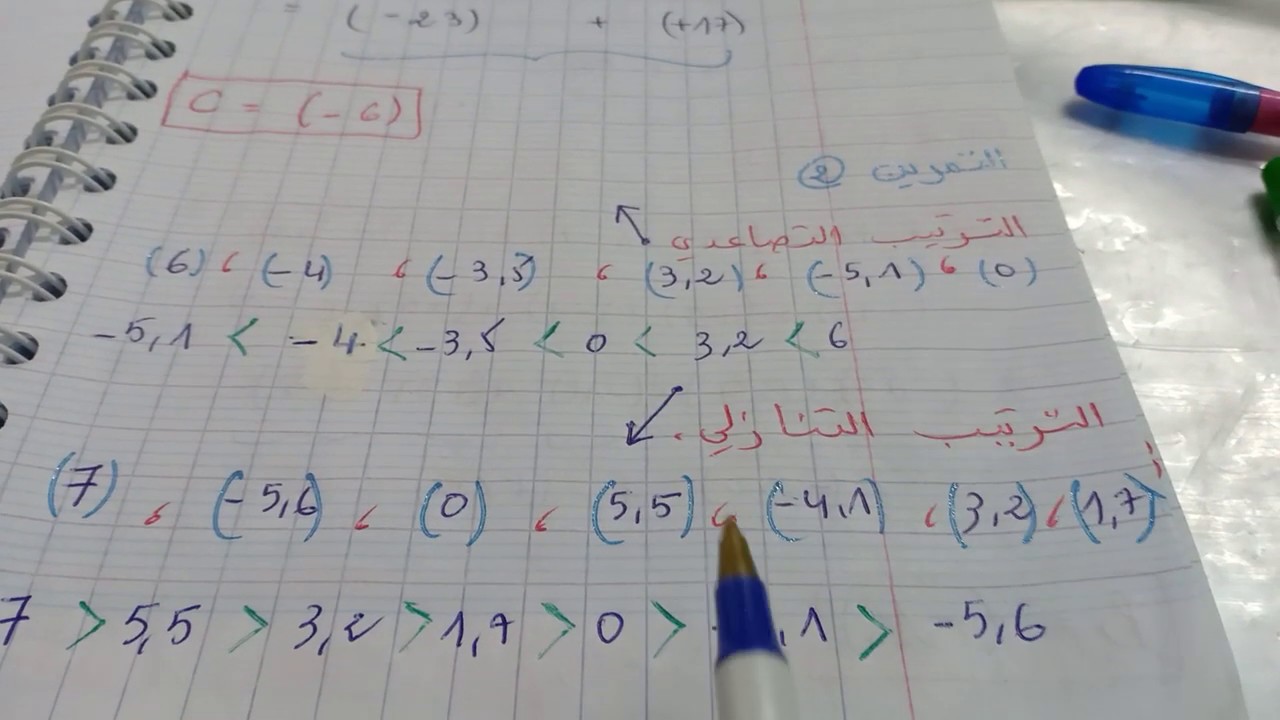 = (-23) + (+17)
C = (-6)
التمرين ②
الترتيب التصاعدي
(6) ، (-4) ، (-3,5) ، (3,2) ، (-5,1) ، (0)
-5,1 < -4 < -3,5 < 0 < 3,2 < 6
الترتيب التنازلي.
(7) ، (-5,6) ، (0) ، (5,5) ، (-4,1) ، (3,2) ، (1,7)
7 > 5,5 > 3,2 > 1,7 > 0 > ,1 > -5,6